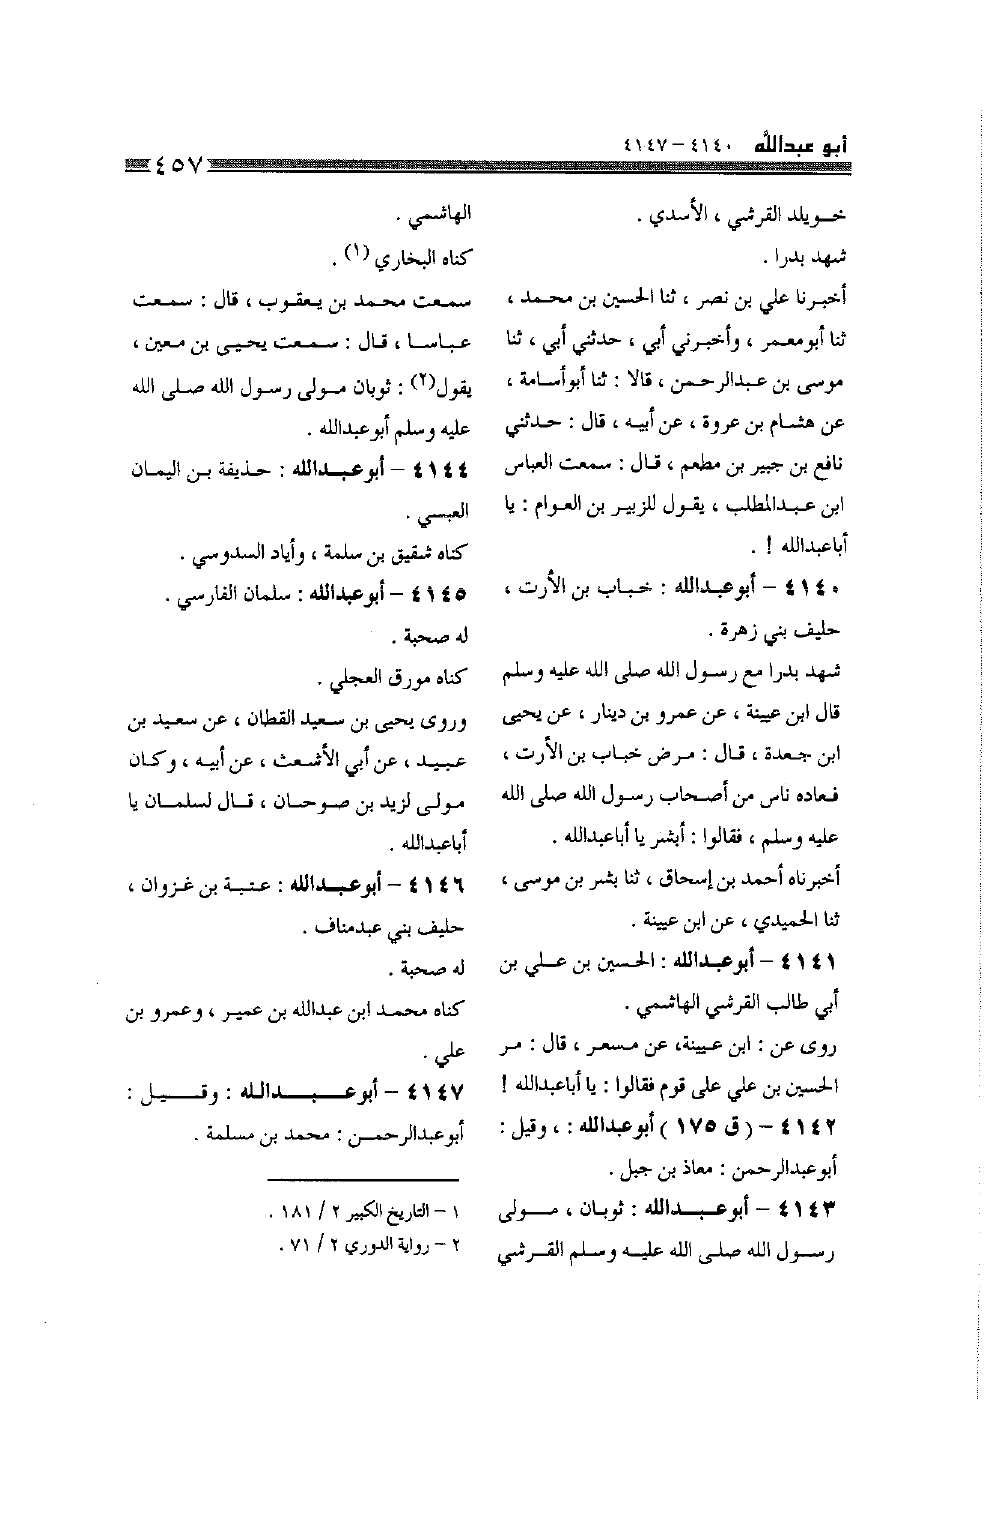 أبو عبدالله ٤١٤٠ – ٤١٤٧
٤٥٧
خـويلد القرشي ، الأسدي .
شهد بدرا .
أخبرنا علي بن نصر ، ثنا الحسين بن محمد ،
ثنا أبومعمر ، وأخبرني أبي ، حدثني أبي ، ثنا
موسى بن عبدالرحمن ، قالا : ثنا أبوأسامة ،
عن هشام بن عروة ، عن أبيه ، قال : حدثني
نافع بن جبير بن مطعم ، قال : سمعت العباس
ابن عبدالمطلب ، يقول للزبير بن العوام : يا
أباعبدالله ! .
٤١٤٠ – أبوعبدالله : خباب بن الأرت ،
حليف بني زهرة .
شهد بدرا مع رسول الله صلى الله عليه وسلم
قال ابن عيينة ، عن عمرو بن دينار ، عن يحيى
ابن جعدة ، قال : مرض خباب بن الأرت ،
فعاده ناس من أصحاب رسول الله صلى الله
عليه وسلم ، فقالوا : أبشر يا أباعبدالله .
أخبرناه أحمد بن إسحاق ، ثنا بشر بن موسى ،
ثنا الحميدي ، عن ابن عيينة .
٤١٤١ – أبوعبدالله : الحسين بن علي بن
أبي طالب القرشي الهاشمي .
روى عن : ابن عيينة، عن مسعر ، قال : مر
الحسين بن علي على قوم فقالوا : يا أباعبدالله !
٤١٤٢ – ( ق ١٧٥ ) أبوعبدالله : ، وقيل :
أبوعبدالرحمن : معاذ بن جبل .
٤١٤٣ – أبوعبدالله : ثوبان ، مولى
رسول الله صلى الله عليه وسلم القرشي
الهاشمي .
كناه البخاري (١) .
سمعت محمد بن يعقوب ، قال : سمعت
عباسا ، قال : سمعت يحيى بن معين ،
يقول(٢) : ثوبان مولى رسول الله صلى الله
عليه وسلم أبوعبدالله .
٤١٤٤ – أبوعبدالله : حذيفة بن اليمان
العبسي .
كناه شقيق بن سلمة ، وأياد السدوسي .
٤١٤٥ – أبوعبدالله : سلمان الفارسي .
له صحبة .
كناه مورق العجلي .
وروى يحيى بن سعيد القطان ، عن سعيد بن
عبيد ، عن أبي الأشعث ، عن أبيه ، وكان
مولى لزيد بن صوحان ، قال لسلمان يا
أباعبدالله .
٤١٤٦ – أبوعبدالله : عتبة بن غزوان ،
حليف بني عبدمناف .
له صحبة .
كناه محمد ابن عبدالله بن عمير ، وعمرو بن
علي .
٤١٤٧ – أبوعبدالله : وقيل :
أبوعبدالرحمن : محمد بن مسلمة .
١ – التاريخ الكبير ٢ / ١٨١ .
٢ – رواية الدوري ٢ / ٧١ .